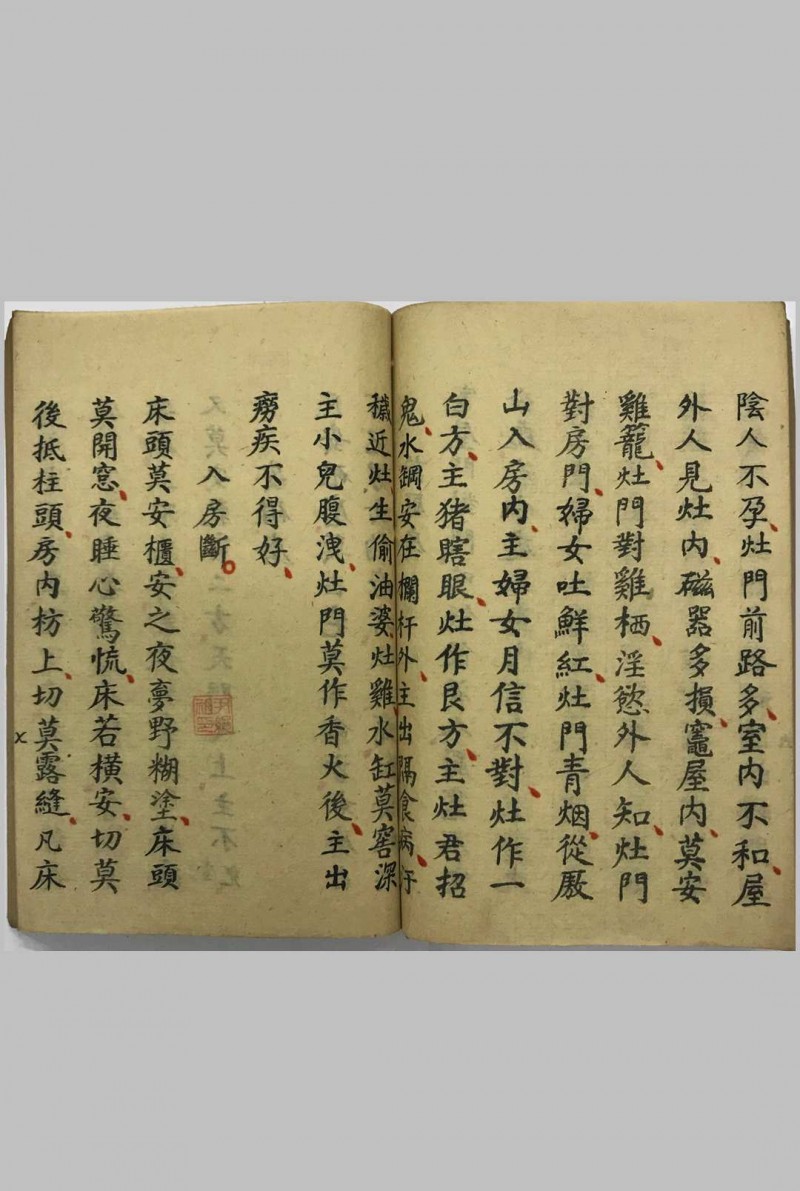 陰人不孕灶門前路多室内不和屋
外人見灶内磁器多損竈屋内莫安
雞籠灶門對雞栖淫慾外人知灶門
對房門婦女吐鮮紅灶門青烟從厫
山入房内主婦女月信不對灶作一
白方主猪瞎眼灶作艮方主灶君招
鬼水鋼安在欄杆外主出隔食病汙
穢近灶生偷油婆灶雞水缸莫窖深
主小兒腹洩灶門莫作香火後主出
癆疾不得好
入房斷
床頭莫安櫃安之夜夢野糊塗床頭
莫開窓夜睡心驚慌床若橫安切莫
後抵柱頭房内枋上切莫露縫凡床